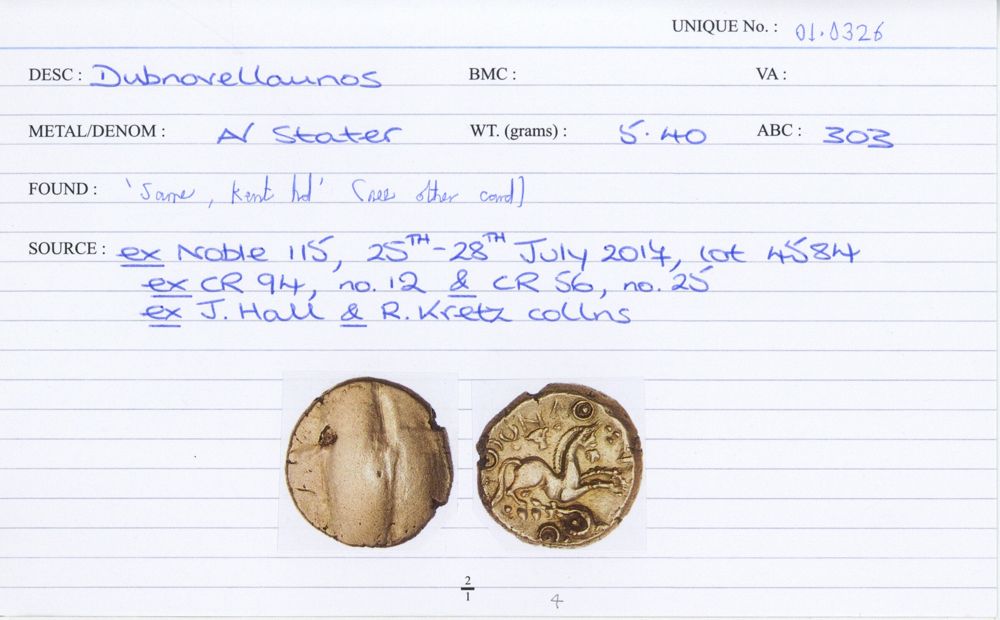 UNIQUE No. : 01.0326
DESC : Dubnovellaunos BMC : VA :
METAL/DENOM : A/ Stater WT. (grams) : 5.40 ABC : 303
FOUND : 'Same, Kent hd' (see other card)
SOURCE : ex Noble 115, 25TH-28TH July 2017, lot 4584
ex CR 94, no.12 & CR 56, no.25
ex J. Hall & R. Kretz collns
DUN
2
1
4